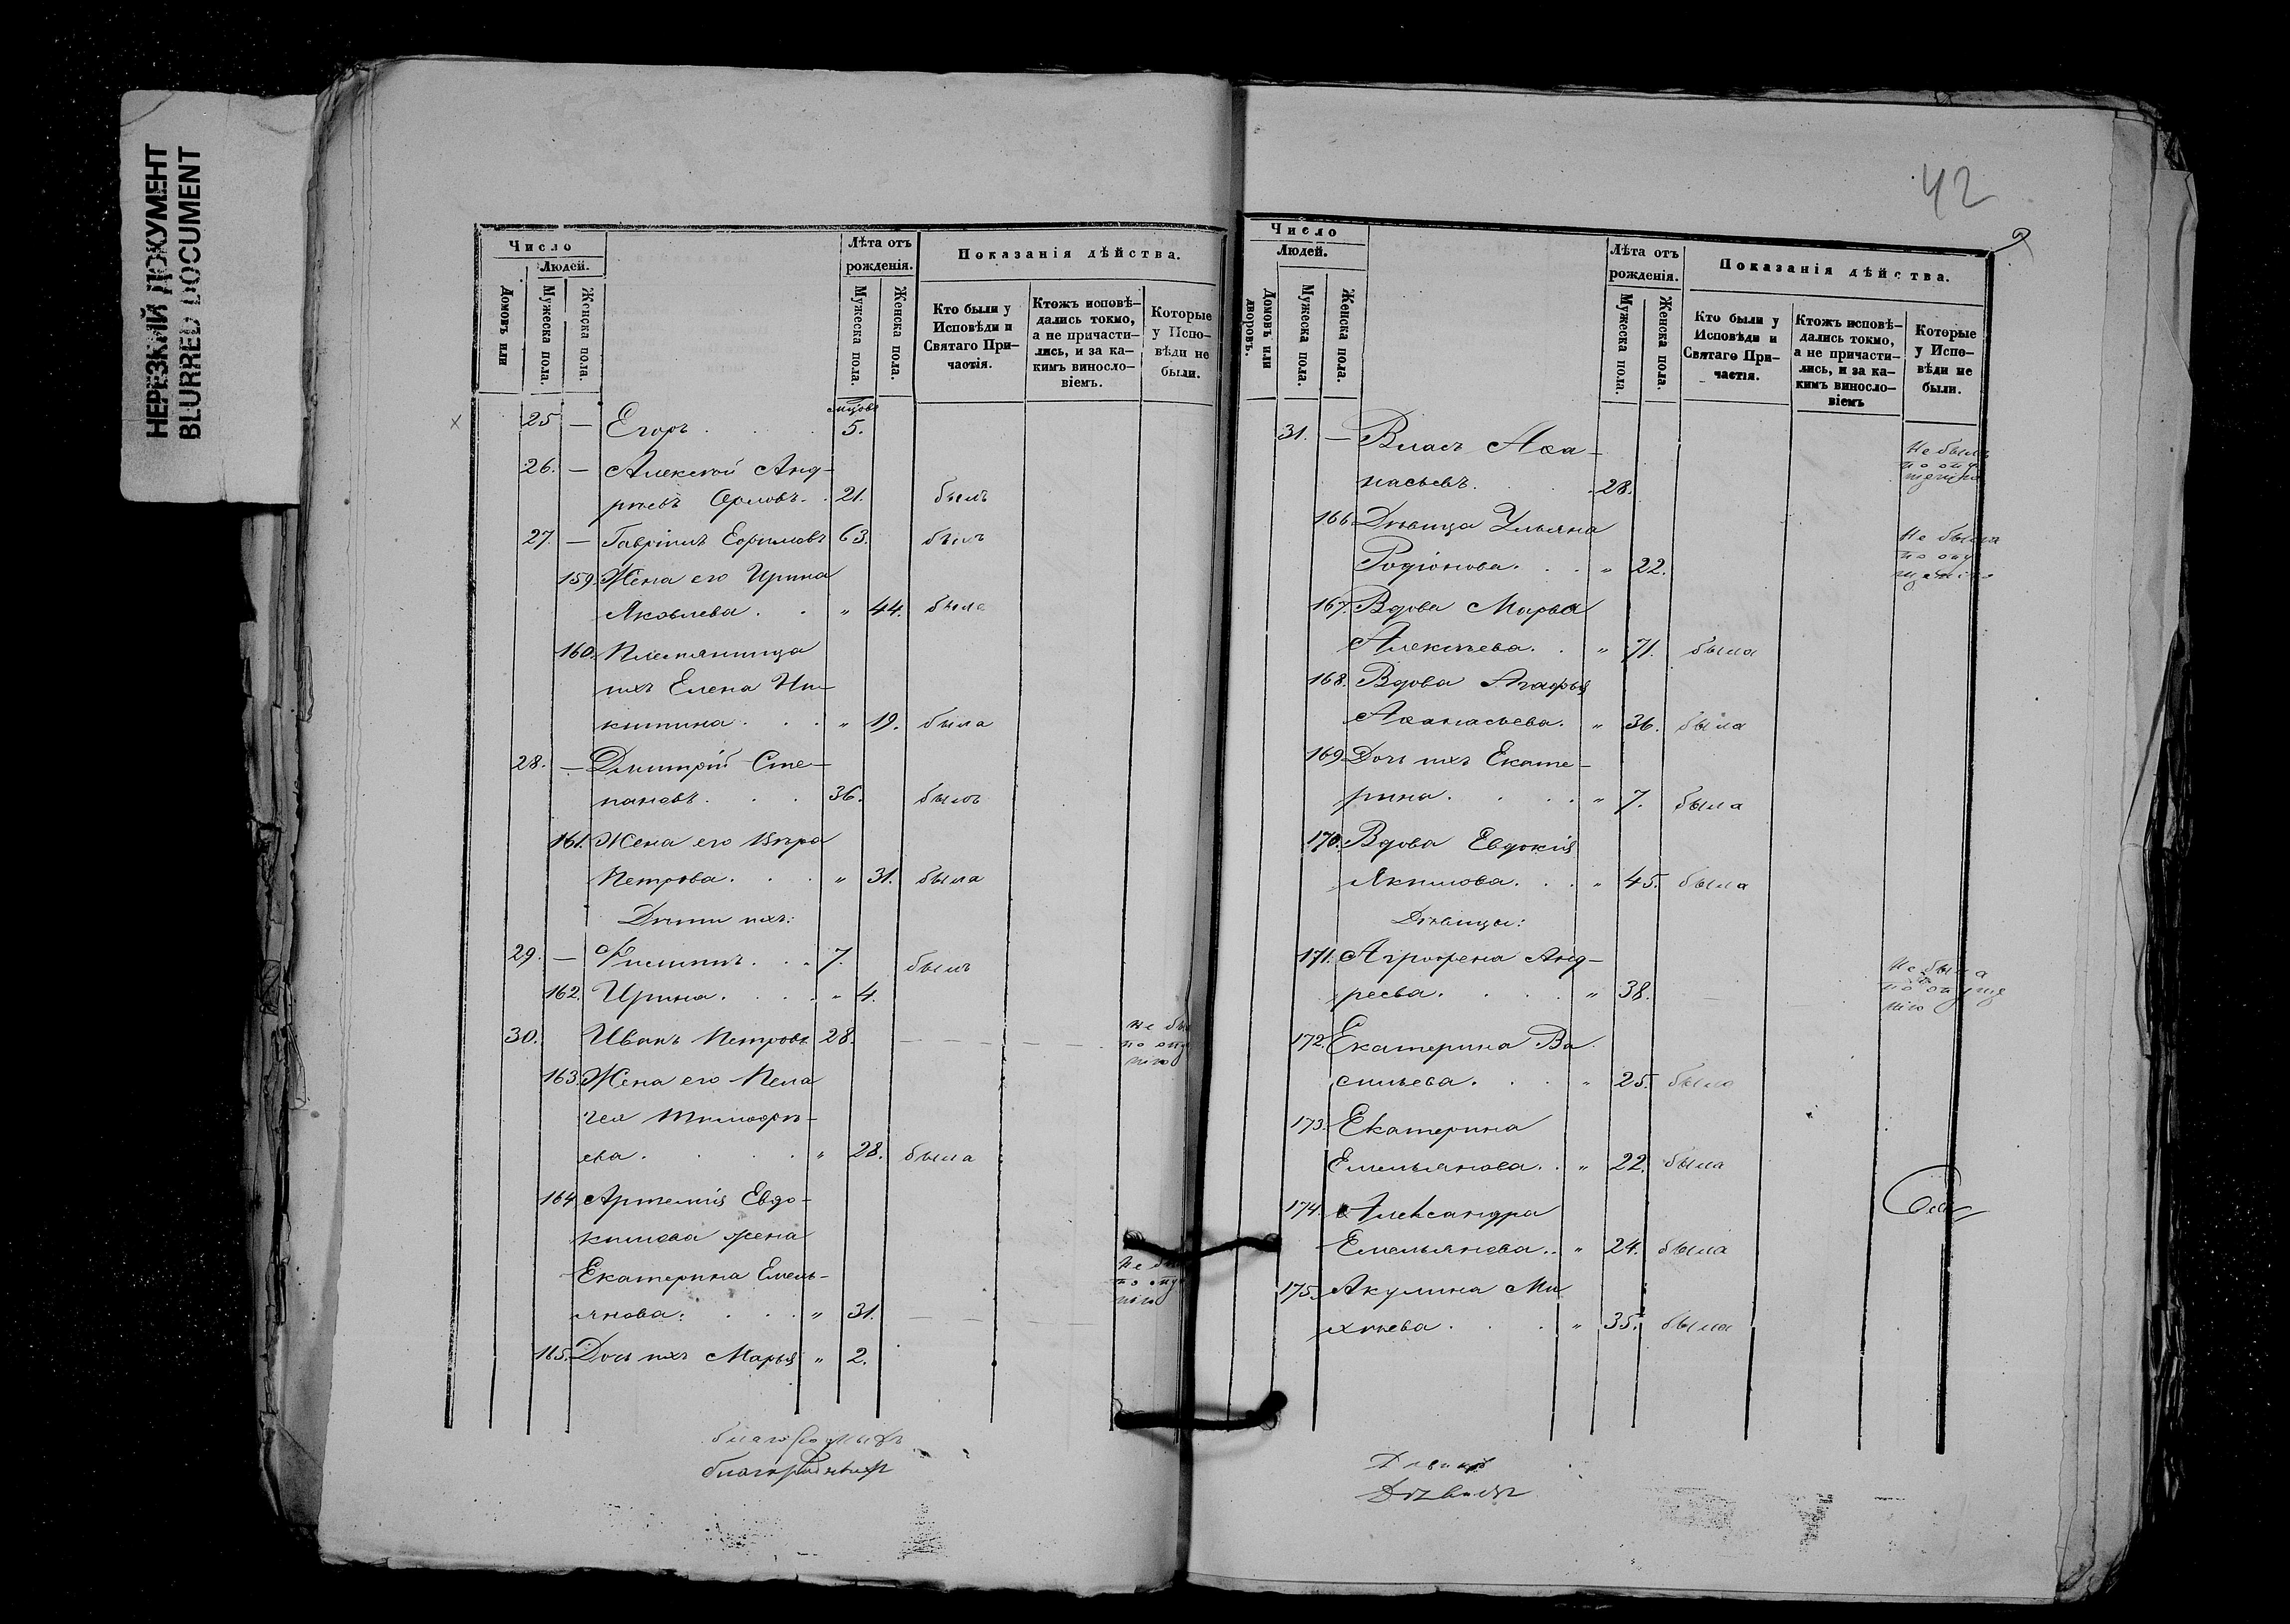 НЕРЕЗКИЙ ДОКУМЕНТ
BLURRED DOCUMENT
Число
Людей.
Домовъ или
Мужеска пола.
Женска пола.
Лѣта отъ
рожденія.
Мужеска пола.
Женска пола.
Показанія дѣйства.
Кто были у
Исповѣди и
Святаго При-
частія.
Ктожъ исповѣ-
дались токмо,
а не причасти-
лись, и за ка-
кимъ виносло-
віемъ.
Которые
у Испо-
вѣди не
были.
25 — Егоръ . 5.
26. — Алексѣй Анд-
рѣевъ Орловъ . . 21. былъ
27. — Гавріилъ Ефимовъ 63. былъ
159. Жена его Ирина
Яковлева . . " 44. была
160. Племянница
ихъ Елена Ни-
китина . . . " 19. была
28. — Дмитрій Сте-
пановъ . . . 36. былъ
161. Жена его Вѣра
Петрова . . . " 31. была
Дѣти ихъ:
29. — Филиппъ . . . 7. былъ
162. Ирина . . . . " 4.
30. Иванъ Петровъ 28. не бы
по опу
нію
163. Жена его Пела
гея Тимофѣ-
ева . . . . " 28. была
164 Артемія Евдо-
кимова жена
Екатерина Емель-
янова: . . . " 31. Не
по опу
нію
165. Дочь ихъ Марья " 2.
42
Число
Людей.
Домовъ или
дворовъ.
Мужеска пола.
Женска пола.
Лѣта отъ
рожденія.
Мужеска пола.
Женска пола.
Показанія дѣйства.
Кто были у
Исповѣди и
Святаго При-
частія.
Ктожъ исповѣ-
дались токмо,
а не причасти-
лись, и за ка-
кимъ виносло-
віемъ
Которые
у Испо-
вѣди не
были.
31. — Власъ Аѳа-
насьевъ . . . 28. Не былъ
по опу
щенію
166 Дѣвица Ульяна
Родіонова . . . " 22. Не была
по опу
щенію
167. Вдова Марья
Алексѣева . . " 71. была
168. Вдова Агафья
Аѳанасьева . " 36. была
169. Дочь ихъ Екате-
рина . . . . " 7. была
170. Вдова Евдокія
Якимова . . . " 45. была
Дѣвицы:
171. Агрофена Анд-
реева . . . . " 38. Не была
по опуще
нію
172. Екатерина Ва
сильева . . . " 25. была
173. Екатерина
Емельянова . . " 22. была
174. Александра
Емельянова . . " 24. была
175. Акулина Ми
хѣева . . . . " 35. была